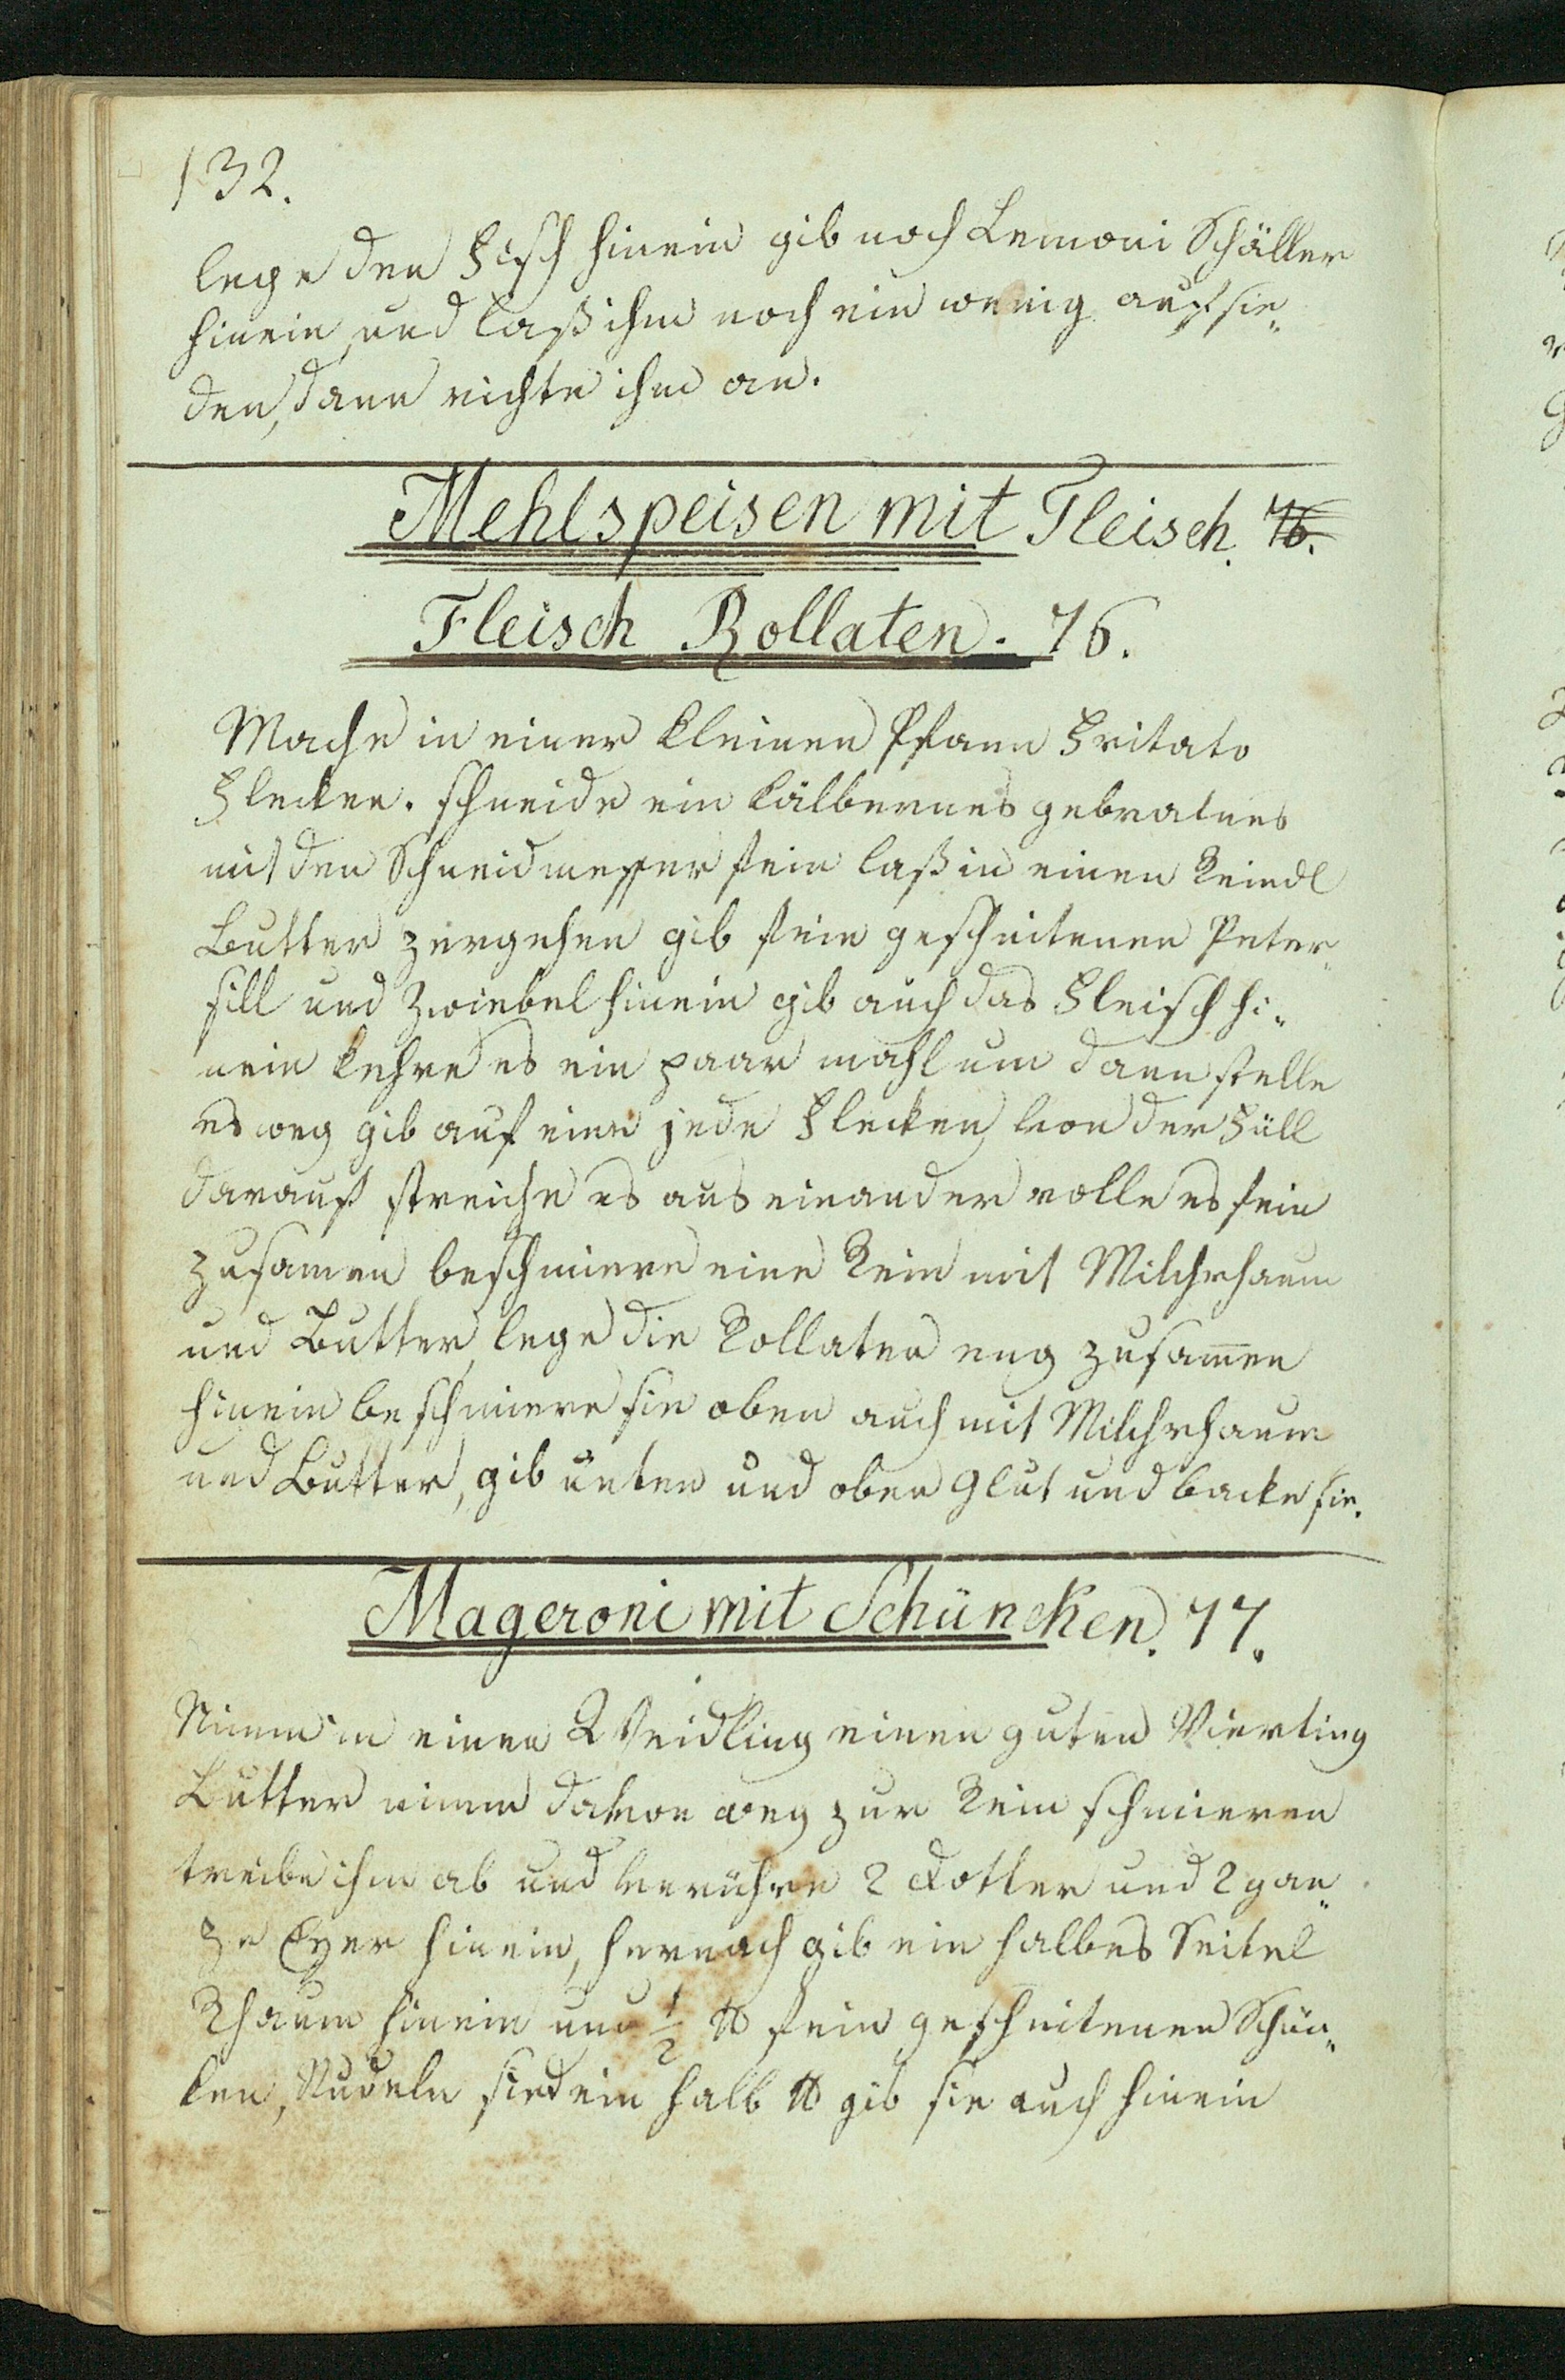 132.
lege den Fisch hinein gib noch Lemoni Schäller
hinein, und laß ihm noch ein wenig aufsie„
den, dann richte ihm an.
Mehlspeisen mit Fleisch. 76.
Fleisch Rollaten. 76.
Mache in einer kleinen Pfann Fritato
Flecken. schneide ein kälbernes gebratnes
mit den Schneidmesser fein laß in einen Reindl
Butter zergehen gib fein geschnitenen Peter„
sill und Zwiebel hinein gib auch das Fleisch hi„
nein kehre es ein paar mahl um dann stelle
es weg gib auf eine jede Flecken von der Füll
darauf streiche es aus einander rolle es fein
zusamen beschmiere eine Rein mit Milchrhaum
und Butter, lege die Rollaten eng zusam̅en
hinein beschmiere sie oben auch mit Milchrhaum
und Butter, gib unten und oben Glut und backe sie.
Mageroni mit Schüncken. 77.
Nimm in einen Weidling einen guten Vierting
Butter nimm davon weg zur Rein schmieren
treibe ihm ab und verrühre 2 Dotter und 2 gan„
ze Eyer hinein, hernach gib ein halbes Seitel
Rhaum hinein und 1/2 ℔ fein geschnitenen Schün„
ken, Nudeln sied ein halb ℔ gib sie auch hinein